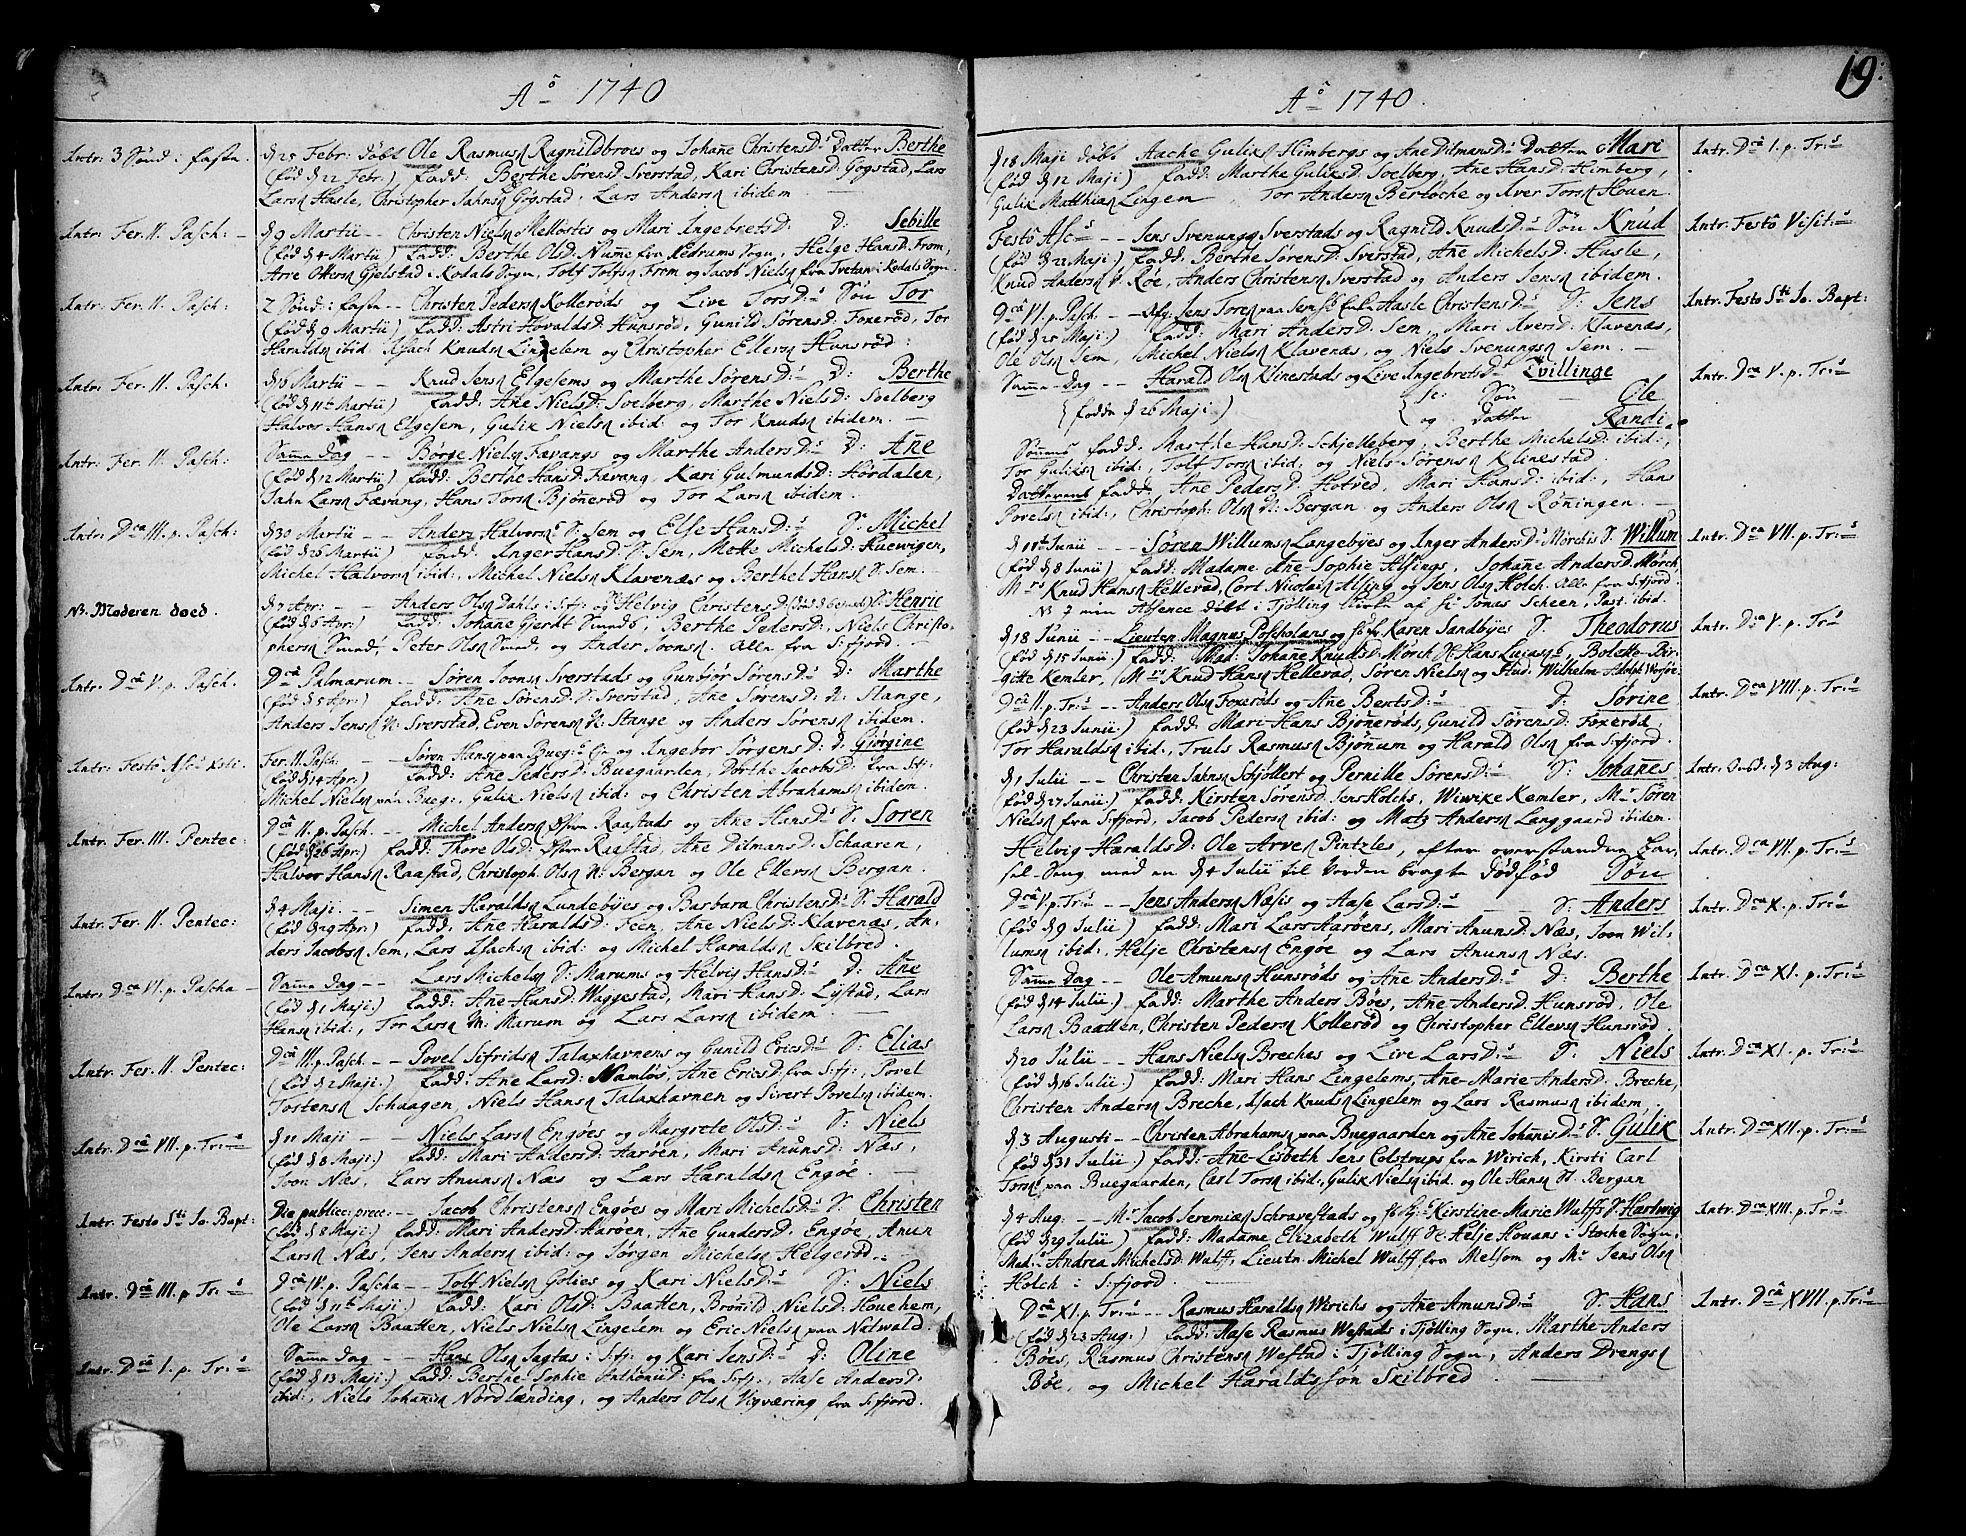 Aō 1740
Intr: 3 Sönd: faste.
d 25 Febr: döbt Ole Rasmusn Ragnildbroes og Johane Christensd: Datter Berthe
(föd d 22 Febr.) fadd: Berthe Sörensd: Sverstad, Kari Christensd: Gögstad, Lars
Larsn Hasle, Christopher Jahnsn Gögstad, Lars Andersn ibidem
Intr: Fer. II. Pasch:
d 9 Martii Christen Nielsn Mellostis og Mari Ingebretsd: D: Sebille
(föd d 4 Martii) fadd: Berthe Olsd: Nume fra Hedrums Sogn, Helge Hansd: From,
Arve Ottersn Gjelstad i Kodals Sogn, Tolf Tolfsn From og Jacob Nielsn fra Tvetan i Kodals Sogn.
Intr: Fer. II. Pasch:
2 Sönd: faste Christen Pedersn Kolleröds og Live Torsd: Sön Tor
(föd d 9 Martii) fadd: Astri Hovaldsd: Hunsröd, Gunild Sörensd: Foxeröd, Tor
Haraldsn ibid: Isach Knudsn Lingelem og Christopher Ellersn Hunsröd:
Intr: Fer. II. Pasch:
d 18 Martii Knud Jensn Elgesems og Marthe Sörensd: D: Berthe
(föd d 11te Martii) fadd: Ane Nielsd: Soelberg, Marthe Nielsd: Soelberg
Halvor Hansn Elgesem, Gulik Nielsn ibid: og Tor Knudsn ibidem.
Intr: Fer. II. Pasch:
Samme Dag Börge Nielsn Fævangs og Marthe Andersd: D: Ane
(föd d 12 Martii) fadd: Berthe Hansd: Fævang, Kari Gulmundsd: Hördalen,
Jahn Larsn Fævang, Hans Torsn Bjöneröd og Tor Larsn ibidem.
Intr: Dca III. p. Pasch:
d 30 Martii Anders Halvorsn S: Sem og Else Hansd: S: Michel
(föd d 26 Martii) fadd: Inger Hansd: S: Sem, Mette Michelsd: Huewigen,
Michel Halvorsn ibid: Michel Nielsn Klavenæs og Berthel Hansn S: Sem.
NB. Moderen doed.
d 7 Apr: Anders Olsn Dahls i S:fj: og Helvig Christensd: S: Henric
(föd d 6 Apr:) fadd: Johane Gjerdt Smeds, Berthe Pedersd:, Niels Christo-
phersn Smed, Peter Olsn Smed, og Ander Joonsn. Alle fra S:fjord.
Intr: Dca V. p. Pasch.
Dca Palmarum Sören Joonsn Sverstads og Gunbjör Sörensd: D: Marthe
(föd d 5 Apr:) fadd: Ane Sörensd: S: Sverstad, Ane Sörensd: N: Stange,
Anders Jensn N: Sverstad, Even Sörensn N: Stange og Anders Sörensn ibidem.
Intr: Festo
Fer. II. Pasch: Sören Hansn paa Bueg: og Ingebor Jörgensd: D: Gjörgine
(föd d 14 Apr:) fadd: Ane Pedersd: Buegaarden, Dorthe Jacobsd: fra S:fj:
Michel Nielsn paa Bueg:, Gulik Nielsn ibid: og Christen Abrahamsn ibidem.
Intr. Fer. III. Pentec:
Dca II. p. Pasch. Michel Andersn Östre Raastads og Ane Hansd: S: Sören
(föd d 26 Apr:) fadd: Thore Olsd: Östre Raastad, Ane Ditmansd: Schaaren,
Halvor Hansn Raastad, Christoph. Olsn N: Bergan og Ole Ellersn Bergan.
Intr. Fer. II. Pentec:
d 4 Maji. Simen Haraldsn Lundebyes og Barbara Christensd: S: Harald
(föd d 29 Apr:) fadd: Ane Haraldsd: Feen, Ane Nielsd: Klavenæs, An-
ders Jacobsn Sem, Lars Isachsn ibid: og Michel Haraldsn Skilbred.
Intr. Dca VI. p. Pascha
Samme Dag Lars Michelsn S: Marums og Helvig Hansd: D: Ane
(föd d 1 Maji:) fadd: Ane Hansd: Waggestad, Mari Hansd: Lystad, Lars
Hansn ibid:, Tor Larsn M: Marum og Lars Larsn ibidem.
Intr. Fer. II. Pentec:
Dca III. p. Pasch Povel Sifridsn Talaxhavnens og Gunild Ericsd: S: Elias
(föd d 2 Maji:) fadd: Ane Larsd: Namlös, Ane Ericsd: fra S:fj:, Povel
Tostensn Schaagen, Niels Hansn Talaxhavnen og Sivert Povelsn ibidem.
Intr. Dca VII. p. Tr:
d 11 Maji Niels Larsn Engöes og Margrete Olsd: S: Niels
(föd d 8 Maji:) fadd: Mari Andersd: Haröen, Mari Anunsd: Næs,
Joon Næs, Lars Anunsn Næs og Lars Haraldsn Engöe.
Intr. Festo Sti Jo. Bapt:
Die public: prec: Jacob Christensn Engöes og Mari Michelsd: S: Christen
(föd d 8 Maji:) fadd: Mari Andersd: Haröen, Ane Gundersd: Engöe, Anun
Larsn Næs, Jens Andersn ibid: og Jörgen Michelsn Helgeröd.
Intr. Dca III. p. Tr:
Dca IV. p. Pascha Tolf Nielsn Golies og Kari Nielsd: S: Niels
(föd d 11te Maji:) fadd: Kari Olsd: Baatten, Brönild Nielsd: Houchem,
Ole Larsn Baatten, Niels Nielsn Lingelem og Eric Nielsn paa Natwald.
Intr. Dca I. p. Tr:
Samme Dag Hans Olsn Jagtas i S:fj: og Kari Jensd: D: Oline
(föd d 13 Maji:) fadd: Berthe Sophie Anthonid: fra S:fj:, Aase Andersd:
ibid:, Niels Johansn Nordlænding, og Anders Olsn Vigværing fra S:fjord.
19.
Aō 1740.
d 18 Maji döbt Aache Guliksn Himbergs og Ane Ditmansd: Datter Mari
Intr. Dca I. p. Tr:
(föd d 12 Maji) fadd: Marthe Guliksd: Soelberg, Ane Hansd: Himberg,
Gulik Matthiasn Lingem, Tor Andersn Bertöche og Iver Torsn Houen.
Festo Asc: Jens Svenungsn Sverstads og Ragnild Knudsd: Sön Knud
Intr. Festo Visit:
(föd d 22 Maji:) fadd: Berthe Sörensd: Sverstad, Ane Michelsd: Hasle,
Knud Andersn V: Röe, Anders Christensn Sverstad og Anders Jensn ibidem.
Dca VI. p. Pasch. Afg: Jens Torsn paa Sem Enke Aasle Christensd: S: Jens
Intr. Festo Sti Jo. Bapt:
(föd d 25 Maji:) fadd: Mari Andersd: Sem, Mari Iversd: Klavenæs,
Ole Olsn Sem, Michel Nielsn Klavenæs, og Niels Svenungsn Sem.
Samme Dag Harald Olsn Klinestads og Live Ingebretsd: Tvillinge
Intr. Dca V. p. Tr:
(födde d 26 Maji:) se: Sön Ole
og Datter Randi.
Sönnens fadd. Marthe Hansd: Schjelleberg, Berthe Michelsd: ibid:,
Tor Guliksn ibid:, Tolf Torsn ibid: og Niels Sörensn Klinestad.
Datterens fadd: Ane Pedersd: Hotved, Mari Hansd: ibid:, Hans
Povelsn ibid:, Christoph: Olsn N: Bergan og Anders Olsn Röningen.
d 11te Junii Sören Willumsn Langebyes og Inger Andersd: Mörchs S: Willum
Intr. Dca VII. p. Tr:
(föd d 8 Junii) fadd: Madame Ane-Sophie Alsings, Johane Andersd: Mörch,
Mrs Knud Hansn Hellerad, Cort Nicolaisn Alsing og Jens Olsn Holch. Alle fra S:fjord.
NB I min Absence döbt i Tjölling Kirke af Hr Jonas Scheen, Past. ibid.
d 18 Junii Lieuten. Magnus Poscholans og Karen Sandbyes S: Theodorus
Intr. Dca V. p. Tr:
(föd d 15 Junii) fadd: Mad: Johane Knudsd: Mörch Hans Lujasn, Bolette-Bir-
gitte Kemler, Mrs Knud Hansn Hellerad, Sören Nielsn og Stud. Wilhelm-Adolph
Dca II. p. Tr: Anders Olsn Foxeröds og Ane Bertsd: D: Sörine
Intr. Dca VIII. p. Tr:
(föd d 23 Junii) fadd: Mari Hans Bjöneröds, Gunild Sörensd: Foxeröd,
Tor Haraldsn ibid:, Truls Rasmusn Bjönnum og Harald Olsn fra S:fjord.
d 1 Julii Christen Jahnsn Schjöllert og Pernille Sörensd: S: Johanes
Intr. Onsd: d 3 Aug:
(föd d 27 Junii:) fadd: Kirsten Sörensd: Jens Holchs, Wiwike Kemler, Mr Sören
Nielsn fra S:fjord, Jacob Pedersn ibid: og Matz Andersn Langgaard ibidem.
Helvig Haraldsd: Ole Arvesn Pintzles, efter overstanden Bar-
Intr. Dca VII. p. Tr:
sel-Seng med en d 4 Julii til Verden bragte dödföd Sön
Dca V. p. Tr: Jens Andersn Næsis og Aase Larsd: S: Anders
Intr. Dca X. p. Tr:
(föd d 9 Julii) fadd: Mari Lars Haröens, Mari Anunsd: Næs, Joon Wil-
lumsn ibid: Helje Christensn Engöe og Lars Anunsn Næs.
Samme Dag Ole Amunsn Hunsröds og Ane Andersd: D: Berthe
Intr. Dca XI. p. Tr:
(föd d 14 Julii) fadd: Marthe Anders Böes, Ane Andersd: Hunsröd, Ole
Larsn Baatten, Christen Pedersn Kolleröd og Christopher Ellersn Hunsröd.
d 20 Julii Hans Nielsn Breches og Live Larsd: S: Niels
Intr. Dca XI. p. Tr:
(föd d 16 Julii:) fadd: Mari Hans Lingelems, Ane-Marie Andersd: Breche,
Christen Andersn Breche, Isach Knudsn Lingelem og Lars Rasmusn ibidem.
d 3 Augusti Christen Abrahamsn paa Buegaarden og Ane Johanisd: S: Gulik
Intr. Dca XII. p. Tr:
(föd d 31 Julii:) fadd: Ane-Lisbeth Jens Colstrups fra Wirich, Kirsti Carl
Torsn paa Buegaarden, Carl Torsn ibid:, Gulik Nielsn ibid. og Ole Hansn N: Bergan
d 4 Aug: Mr Jacob Jeremiæsn Schravestads og Kirstine-Marie Wulffs S: Hartwig
Intr. Dca XIII. p. Tr:
(föd d 29 Julii) fadd: Madame Elizabeth Wulff Helje Houans i Stocke Sogn,
Mad: Andrea Michelsd: Wulff, Lieutn. Michel Wulff fra Melsom og Mr Jens Olsn
Holch i S:fjord.
Dca XI. p. Tr: Rasmus Haraldsn Wirichs og Ane Amunsd: S: Hans
Intr. Dca XVII. p. Tr:
(föd d 23 Aug:) fadd: Aase Rasmus Westads i Tjölling Sogn, Marthe Anders
Böes, Rasmus Christensn Westad i Tjölling Sogn, Anders Drengsn
Böe, og Michel Haraldssön Skilbred.